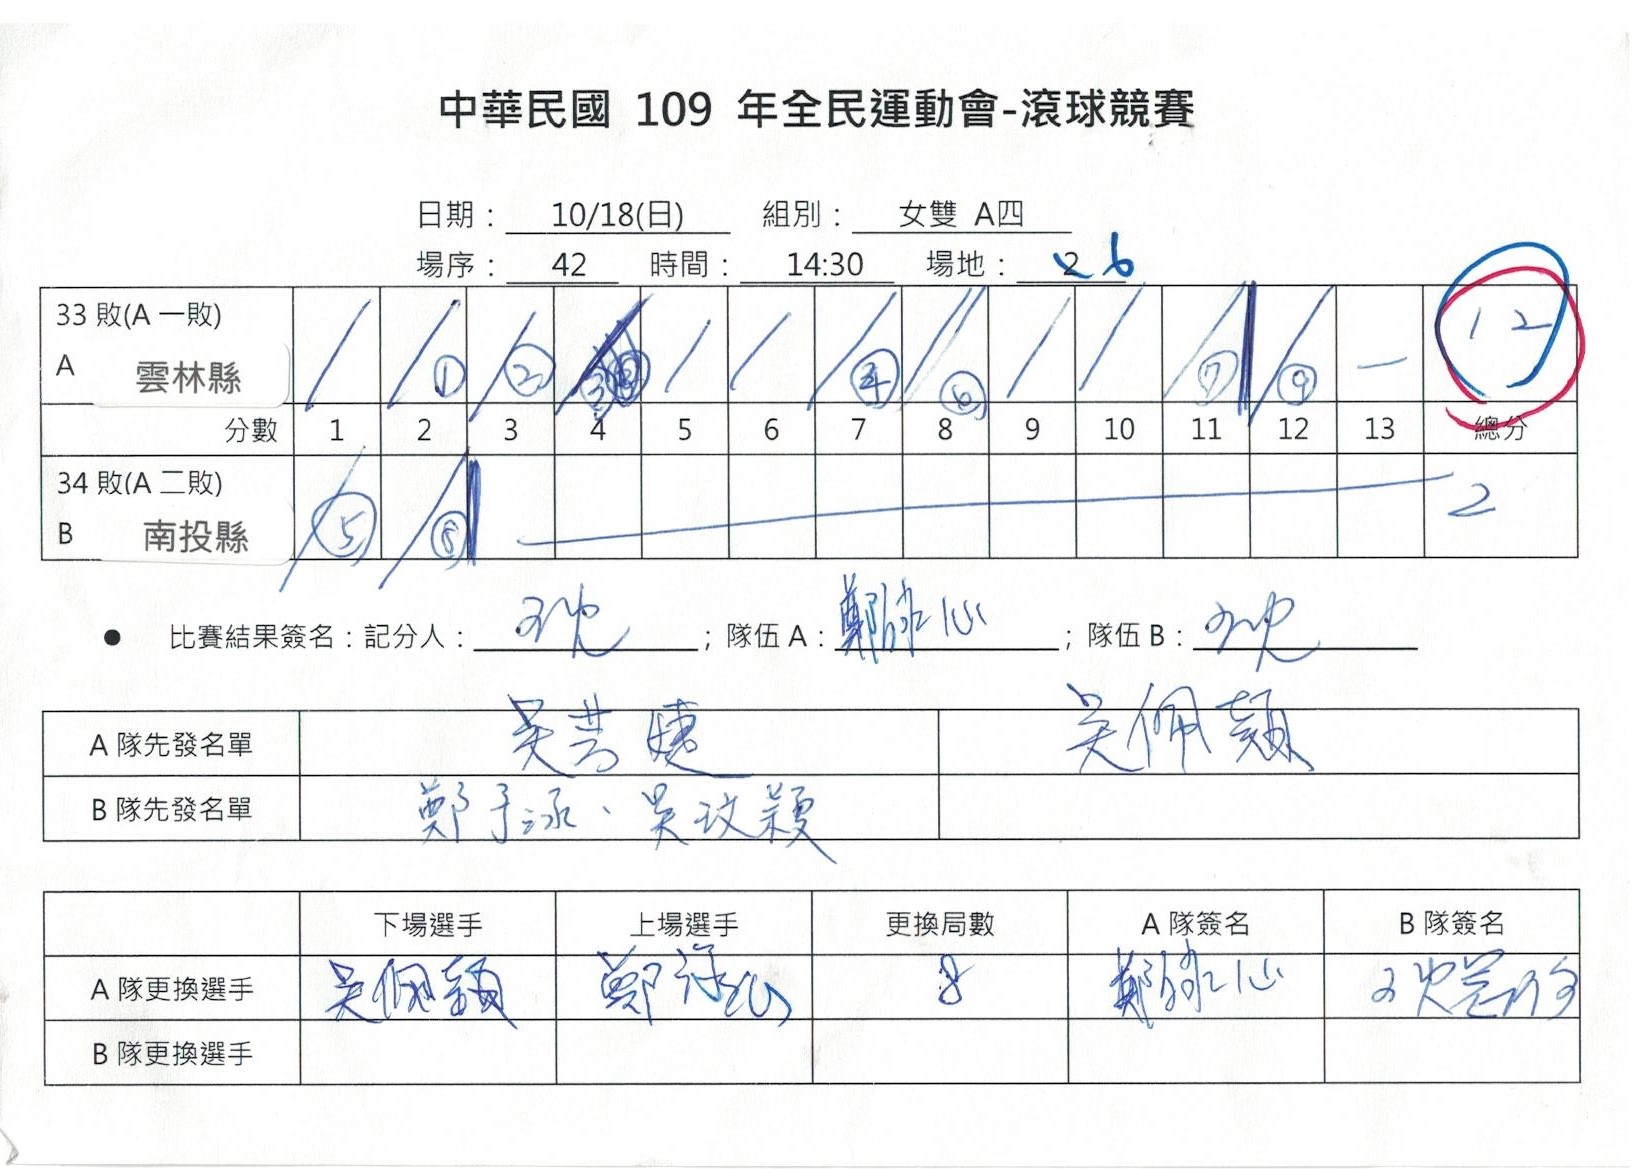 中華民國 109 年全民運動會-滾球競賽
日期： 10/18(日) 組別： 女雙 A四
場序： 42 時間： 14:30 場地： 2 6
33 敗(A 一敗)
A 雲林縣 ① ② ④ ⑥ ⑦ ⑨ 12
分數 1 2 3 4 5 6 7 8 9 10 11 12 13 總分
34 敗(A 二敗)
B 南投縣 ⑤ ⑧ 2
● 比賽結果簽名：記分人： ；隊伍 A： ；隊伍 B：
A 隊先發名單 吳 吳佩穎
B 隊先發名單 鄭予泳、吳玟穎
下場選手 上場選手 更換局數 A 隊簽名 B 隊簽名
A 隊更換選手 吳佩穎 鄭 8 鄭
B 隊更換選手